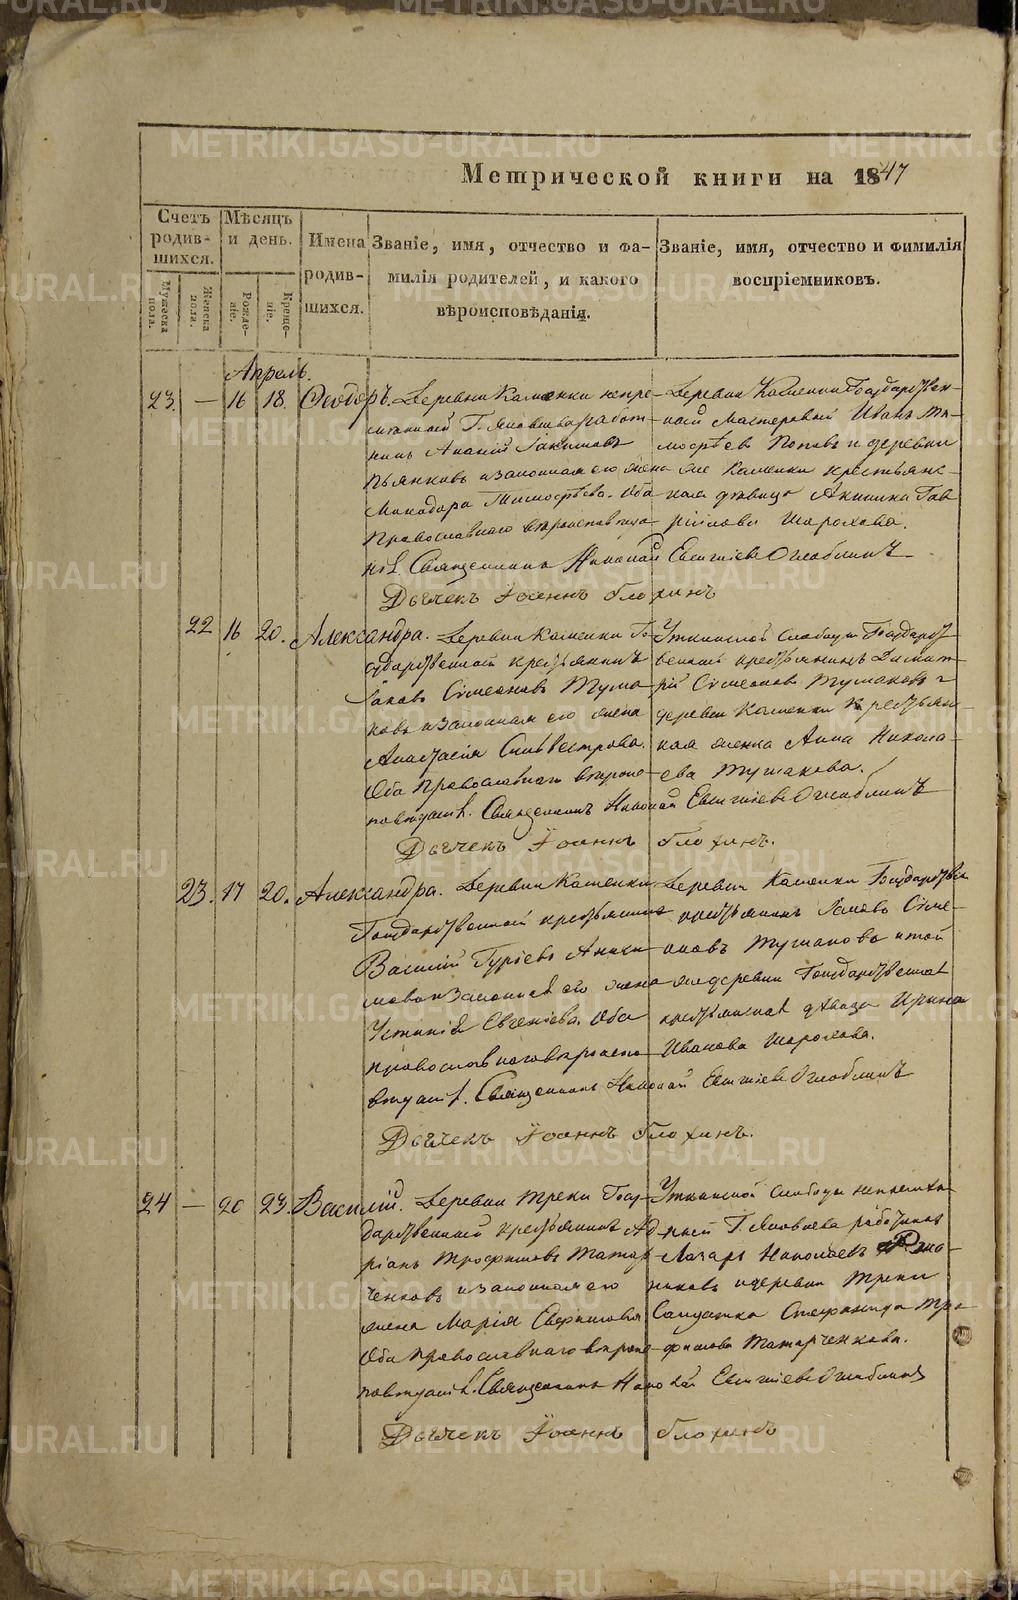 METRIKI.GASO-URAL.RU
Метрической книги на 1847
Счетъ родив-шихся.
Мужеска пола.
Женска пола.
Мѣсяцъ и день.
Рожде-ніе.
Креще-ніе.
Имена родив-шихся.
Званіе, имя, отчество и фа-милія родителей, и какого вѣроисповѣданія.
Званіе, имя, отчество и фимилія воспріемниковъ.
Апрель.
23. — 16 18. Ѳеодоръ.
Деревни Каменки непре-
мѣнный Г. Яковлева работ-
никъ Ананій Іакимовъ
Пьянковъ и законная его жена
Минодора Тимофѣева. Оба
Православнаго вѣроисповѣда-
нія.
Деревни Каменки Государствен-
ный Мастеровый Иванъ Ти-
мофѣевъ Поповъ и деревни
же Каменки крестьянс-
кая дѣвица Акилина Гав
риилова Шарохова.
Священникъ Николай Евгеніевъ Оглоблинъ
Дьячекъ Іоаннъ Блохинъ
22 16 20. Александра.
Деревни Каменки Го-
сударственный крестьянинъ
Іаковъ Симеоновъ Тума
ковъ и законная его жена
Анастасія Сильвестрова.
Оба Православнаго вѣроис-
повѣданія.
Уткинской слободы Государст-
венный крестьянинъ Димит-
рій Симеоновъ Тумаковъ и
деревни Каменки крестьян-
ская женка Анна Никола-
ева Тумакова.
Священникъ Николай Евгеніевъ Оглоблинъ
Дьячекъ Іоаннъ Блохинъ.
23. 17 20. Александра.
Деревни Каменки
Государственный крестьянинъ
Василій Гуріевъ Аники
мовъ и законная его жена
Устинія Евгеніева. Оба
православнаго вѣроиспо-
вѣданія.
Деревни Каменки Государствен
крестьянинъ Іаковъ Симе-
оновъ Тумаковъ и той
же деревни Государственная
крестьянская дѣвица Ирина
Иванова Шарохова.
Священникъ Николай Евгеніевъ Оглоблинъ
Дьячекъ Іоаннъ Блохинъ.
24 — 20 23. Василій.
Деревни Треки Госу-
дарственный крестьянинъ Ад
ріанъ Трофимовъ Татар
ченковъ и законная его
жена Марія Евфимовна
Оба Православнаго вѣроис-
повѣданія.
Уткинской слободы непремѣн-
ный Г. Яковлева работникъ
Лазарь Николаевъ
никовъ и деревни Треки
Солдатка Стефанида Тро-
фимова Татарченкова.
Священникъ Николай Евгеніевъ Оглоблинъ
Дьячекъ Іоаннъ Блохинъ